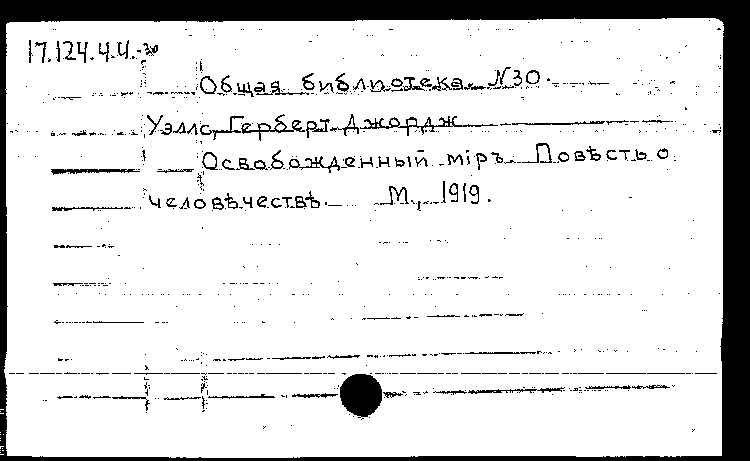 17.124.4.4.-30
Общая библиотека. N30.
Уэллс, Герберт Джордж
Освобожденный мiръ. Повѣсть о
человѣчествѣ. М., 1919.